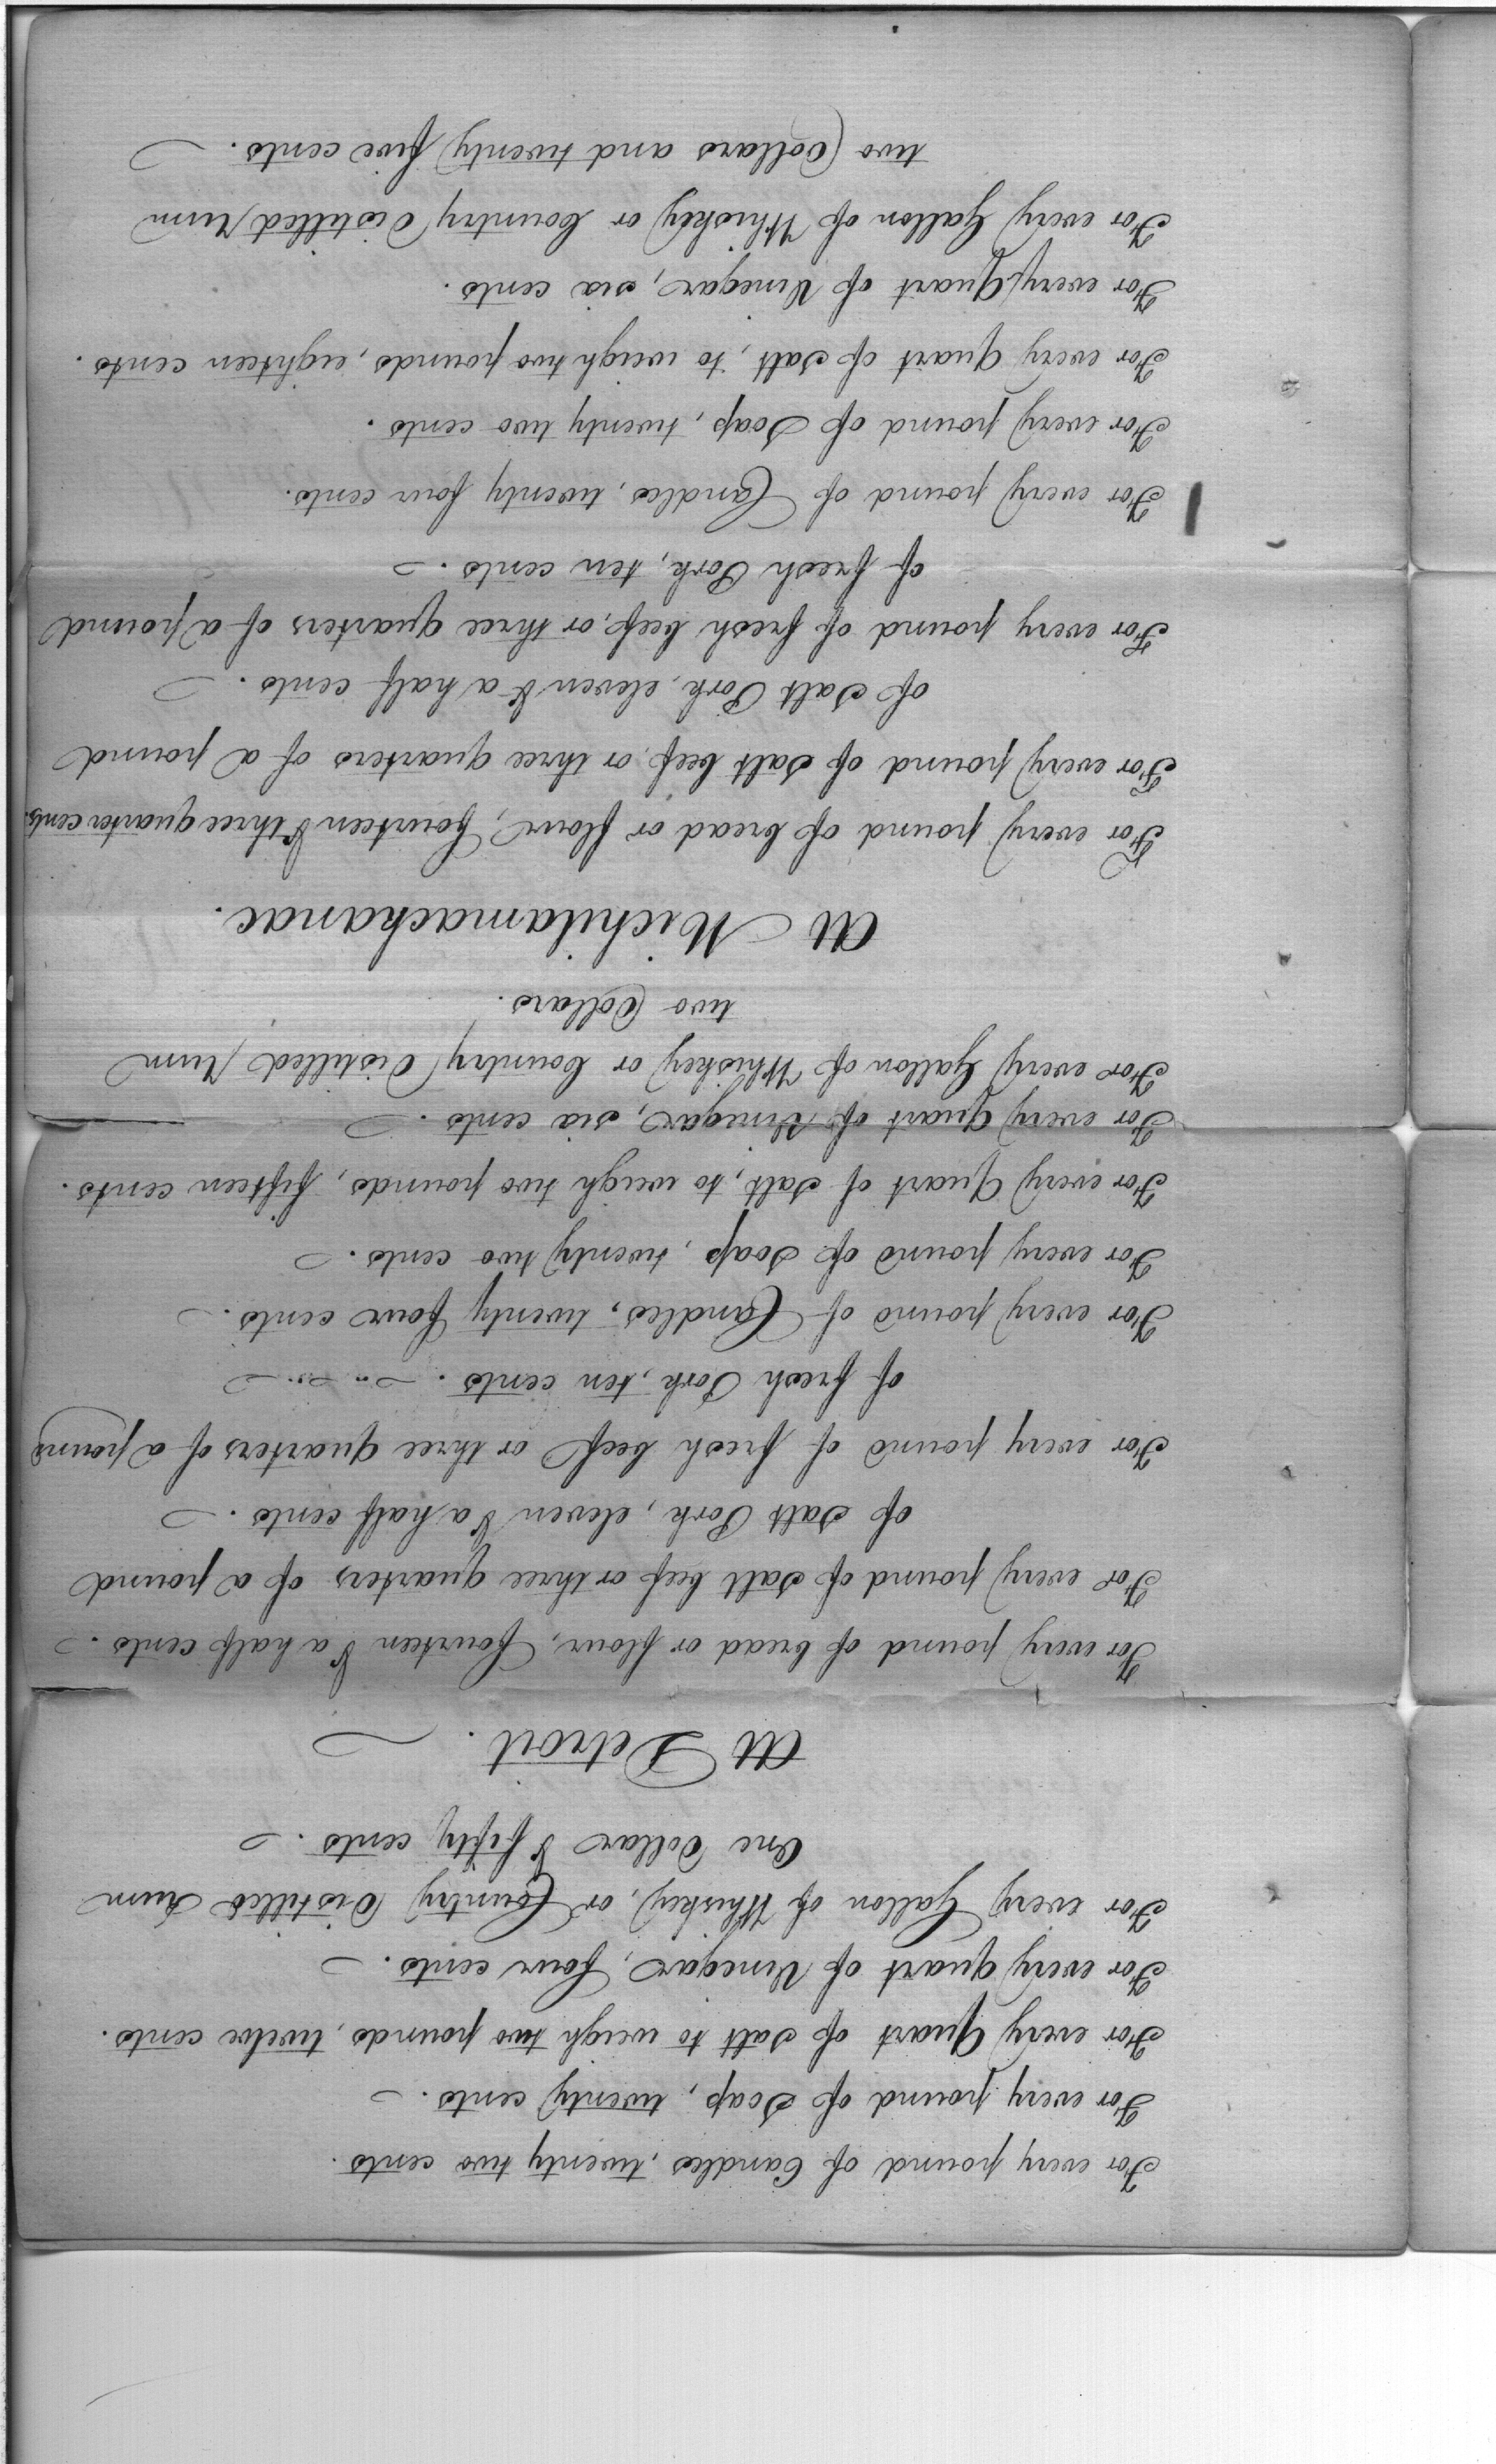 For every pound of Candles, twenty two cents.
For every pound of Soap, twenty cents.
For every Quart of Salt to weigh two pounds, twelve cents.
For every quart of Vinegar, four cents.
For every Gallon of Whiskey, or Country Distilled Rum
One Dollar & fifty cents.
At Detroit.
For every pound of bread or flour, fourteen & a half cents.
For every pound of Salt beef or three quarters of a pound
of Salt Pork, eleven & a half cents.
For every pound of fresh beef or three quarters of a pound
of fresh Pork, ten cents.
For every pound of Candles, twenty four cents.
For every pound of Soap, twenty two cents.
For every Quart of Salt, to weigh two pounds, fifteen cents.
For every Quart of Vinegar, six cents.
For every Gallon of Whiskey or Country Distilled rum
two Dollars.
At Michilamackanac.
For every pound of bread or flour, fourteen & three quarter cents.
For every pound of Salt beef, or three quarters of a pound
of Salt Pork, eleven & a half cents.
For every pound of fresh beef, or three quarters of a pound
of fresh Pork, ten cents.
For every pound of Candles, twenty four cents.
For every pound of Soap, twenty two cents.
For every Quart of Salt, to weigh two pounds, eighteen cents.
For every Quart of Vinegar, six cents.
For every Gallon of Whiskey or Country Distilled rum
two Dollars and twenty five cents.